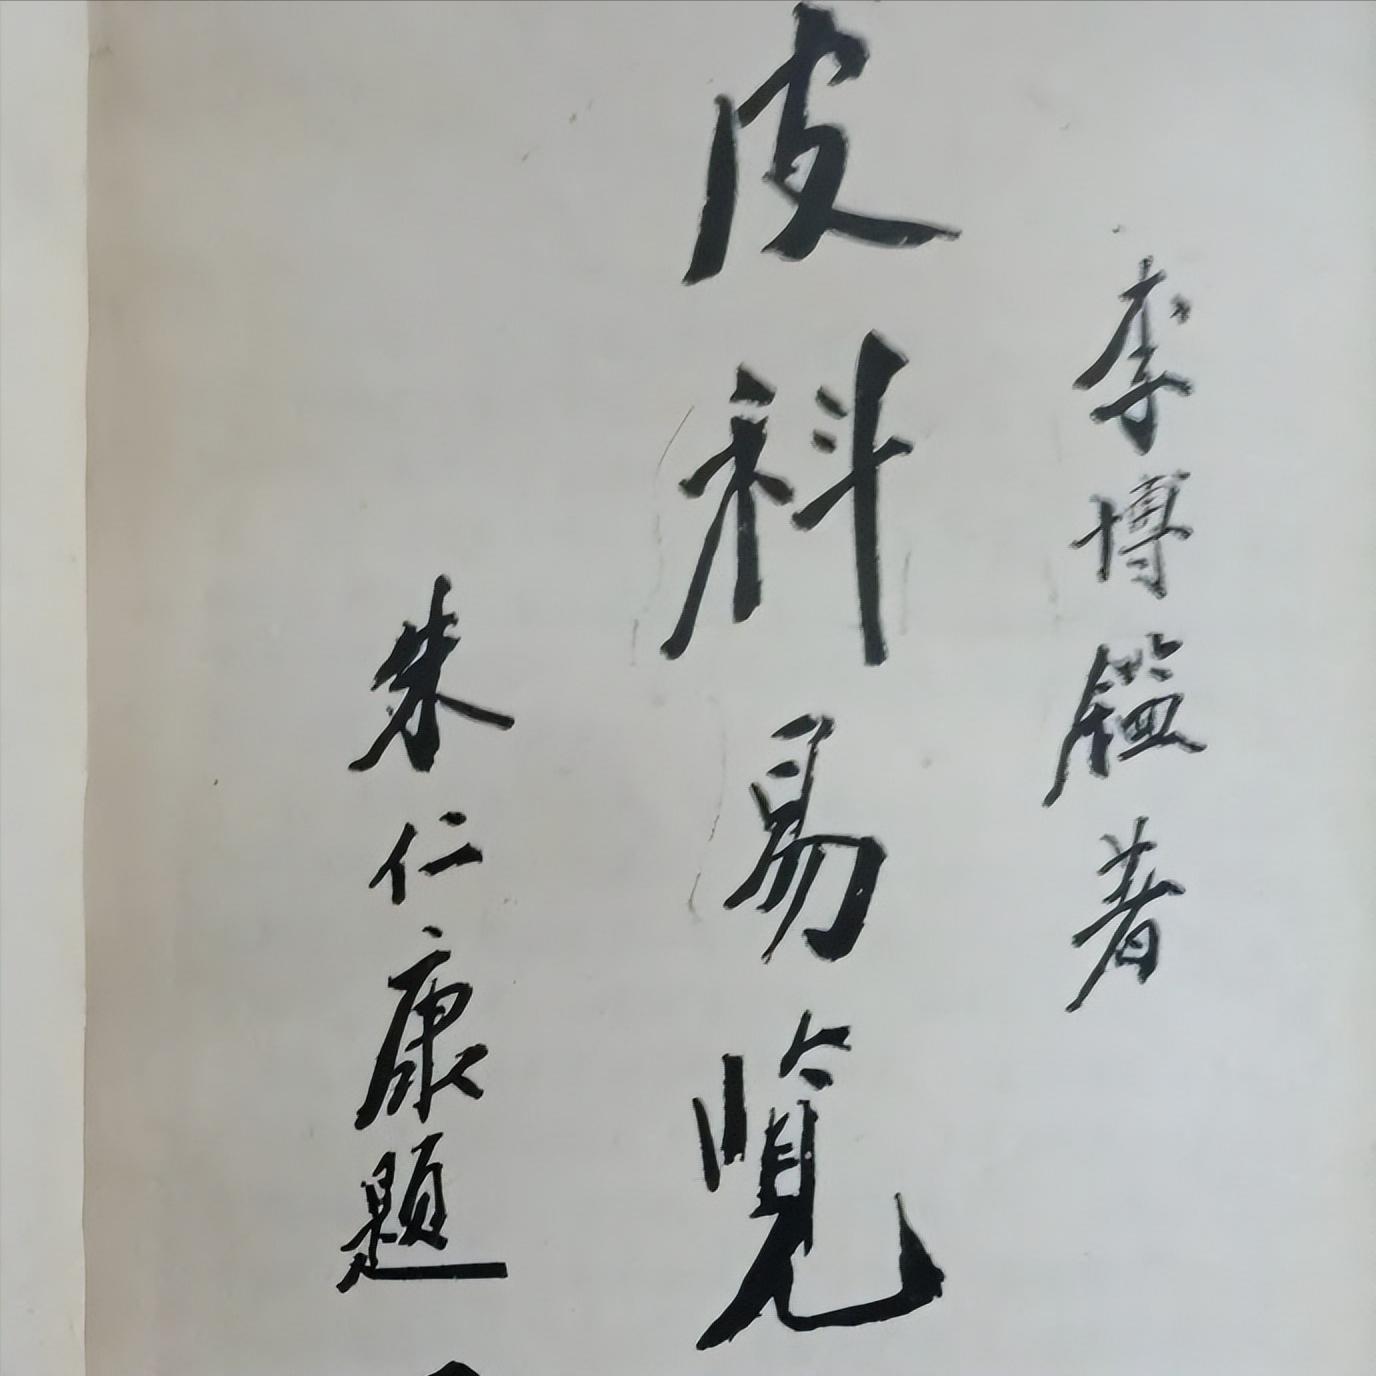 李博鑑著
皮科易览
朱仁康题